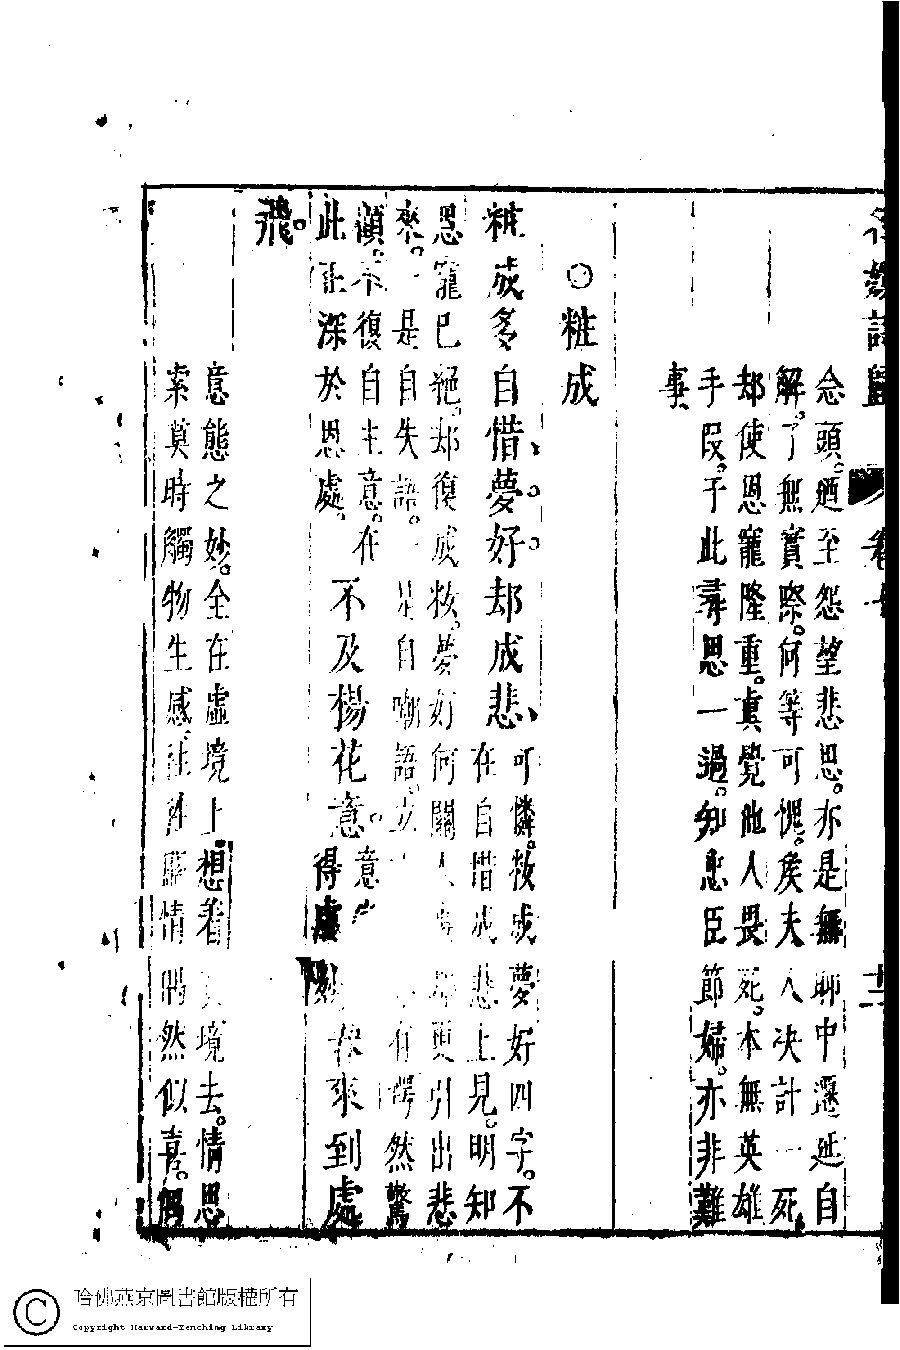 名媛詩歸 卷十 十二
念頭。廼至怨望悲思。亦是無聊中遷延自
解。了無實際。何等可愧。矣夫人决計一死
却使恩寵隆重。真覺他人畏死。本無英雄
手段。于此尋思一過。知忠臣節婦。亦非難
事
○粧成
粧成多自惜、夢。好。却成悲、可憐。妝成夢好四字。不
在自惜成悲上見。明知
恩寵已絕。却復成妝。夢好何關人更引出悲
來。一是自失語。一是自嘲語。立有愕然驚
顧。不復自主意。在
此正深於思處。
不及楊花意。意
得處春來到處
飛。
意態之妙。全在虛境上。想着境去。情思
索莫時觸物生感。往情偶然似喜。偶
哈佛燕京圖書館版權所有
Copyright Harvard-Yenching Library